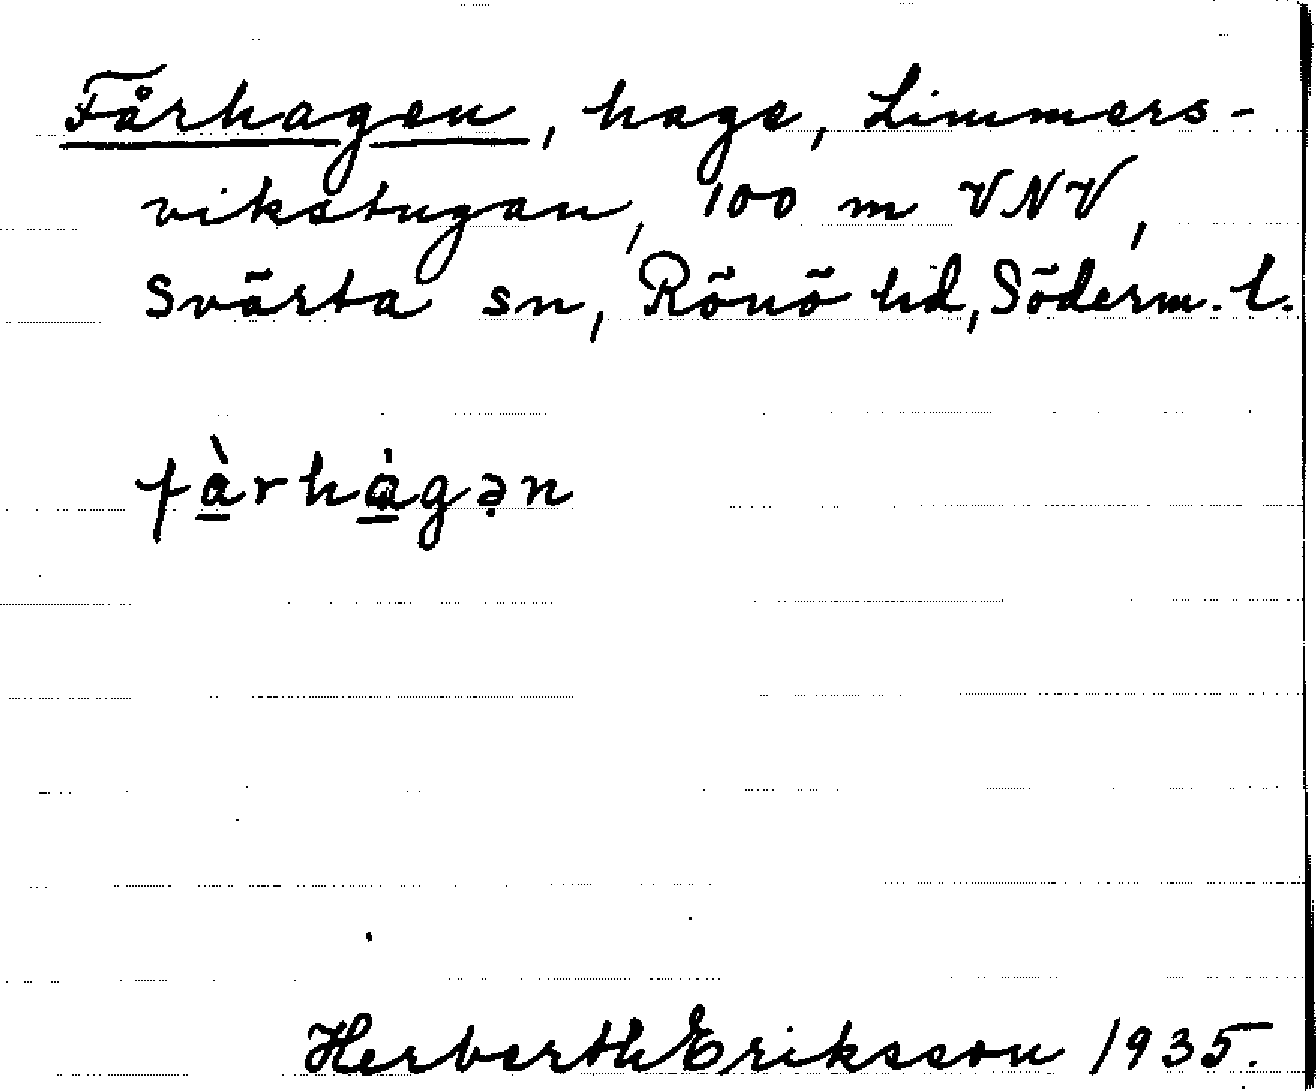 Fårhagen, hage, Limmers-
vikstugan, 100 m VNV,
Svärta sn, Rönö hd, Söderm. l.
fàrhȧgən
Herberth Eriksson 1935.